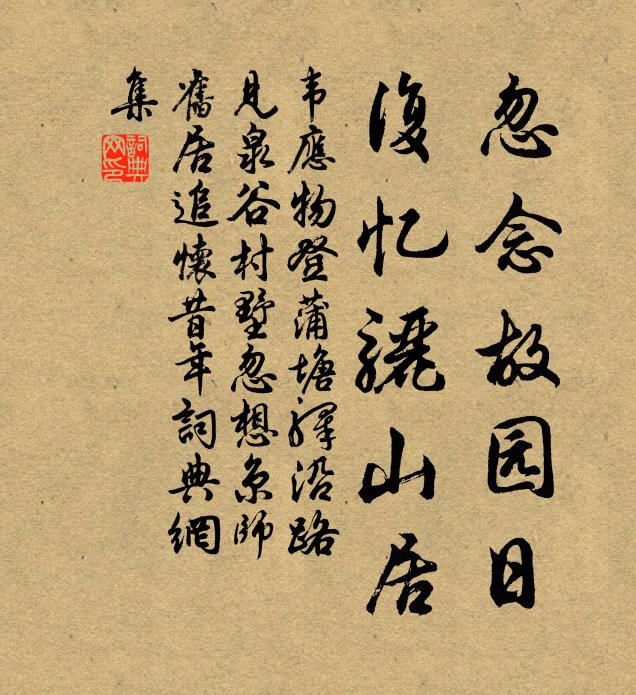 忽念故园日
复忆骊山居
韦應物登蒲塘驛沿路
見泉谷村墅忽想京師
舊居追懷昔年詞典網
集
詞典網印